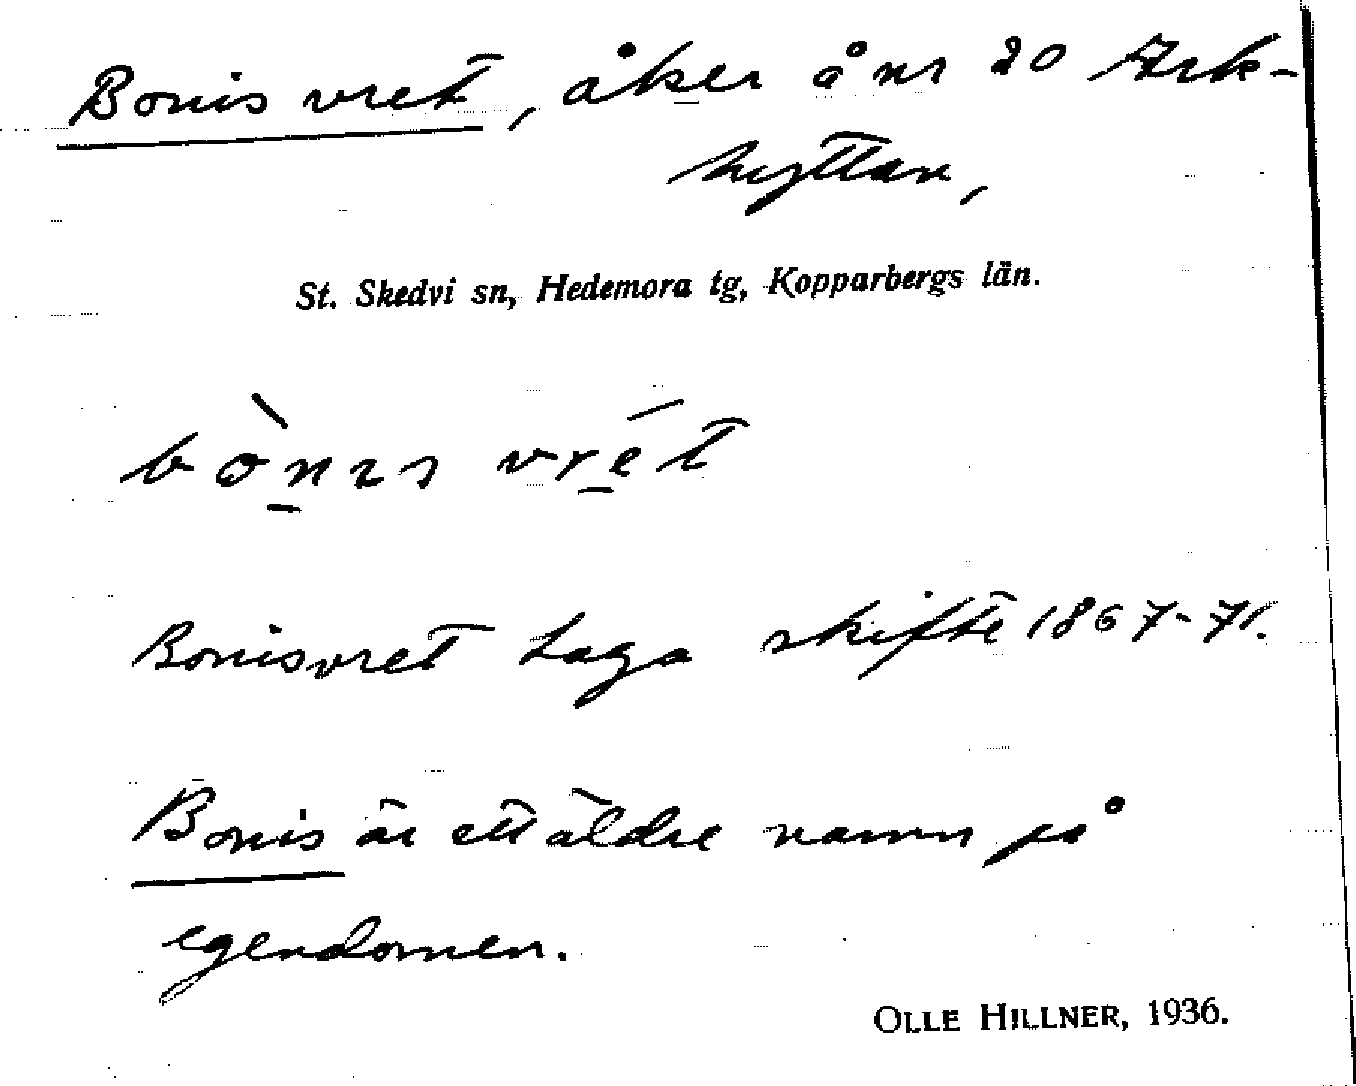 Bonis vret, åker å nr 20 Ark-
hyttan,
St. Skedvi sn, Hedemora tg, Kopparbergs län.
Bonisvret Laga skifte 1867-71.
Bonis är ett äldre namn på
egendomen.
OLLE HILLNER, 1936.